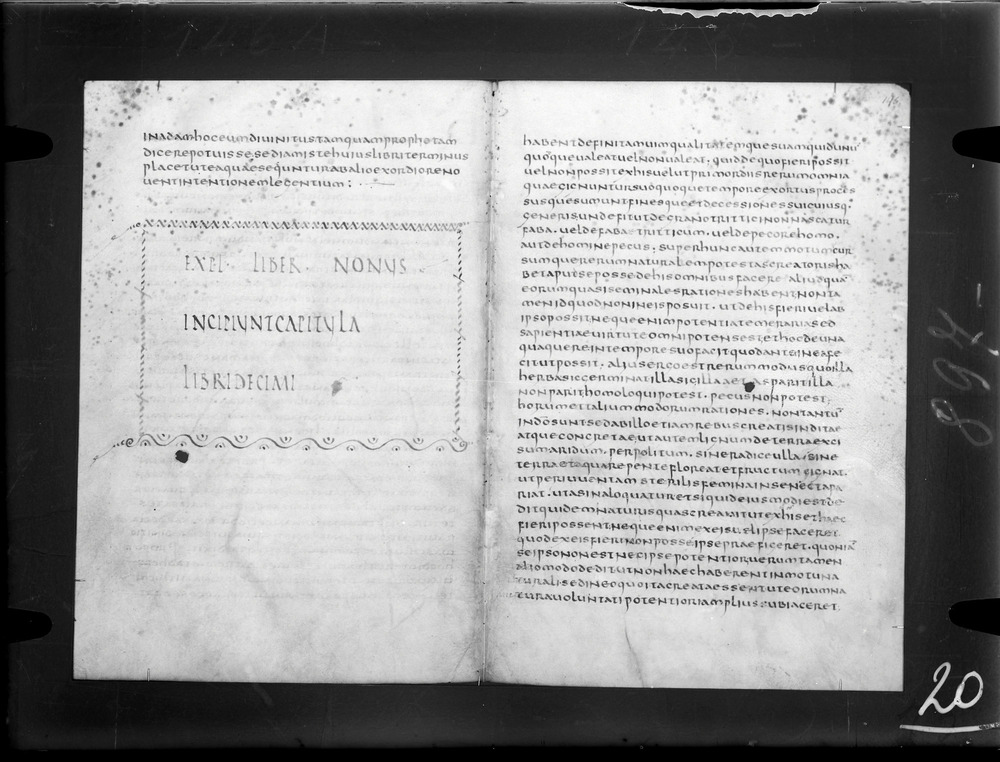 inadamhoceumdiuinitustamquamprophetam
dicerepotuisse.sediamistehuiuslibriterminus
placetuteaquaesequunturabalioexordioreno
uentintentionemlegentium:
EXPL· LIBER· NONUS
INCIPIUNTCAPITULA
LIBRIDECIMI
habentdefinitamuimqualitatemquesuamquiduniī
quoqueualeatuelnonualeat.quiddequofieripossit
uelnonpossitexhisuelutprimordiisrerumomnia
quaegignuntursuoquoquetemporeexortusproces
susquesumuntfinesqueetdecessionessuicuiusq·
generisundefitutdegranotriticinonnascatur
faba.ueldefabatriticum.ueldepecorehomo.
autdehominepecus.superhuncautemmotumcur
sumquererumnaturalempotestascreatorisha
betapudseposse dehisomnibusfacere aliudquā
eorumquasiseminalesrationeshabentnonta
menidquodnonineisposuit.utdehisfieriuelab
ipsopossitnequeenimpotentiatemerariased
sapientiaeuirtuteomnipotensestethocdeuna
quaquereintemporesuofacitquodanteineafe
citutpossit.aliusergoestrerummodusquoilla
herbasicgerminatillasicillaaetasparitilla
nonparithomoloquipotest.pecusnonpotest;
horumettaliummodorumrationes.nontantū
indōsuntsedabilloetiamrebuscreatisinditae
atqueconcretaeutautemlignumdeterraexci
sumaridum.perpolitum.sineradiceulla.sine
terraetaquarepentefloreatetfructumgignat.
utperiuuentamsterilisfeminainsenectapa
riat.utasinaloquaturetsiquideiusmodiestde
ditquidemnaturisquascreauitutexhisethaec
fieripossentnequeenimexeisuelipsefaceret.
quodexeisfierinonposseipsepraeficeret.quoniā
seipsononestnecipsepotentioruerumtamen
aliomododedit utnonhaechaberentinmotuna
turalisedineoquoitacreataessentuteorumna
turauoluntatipotentioriampliussubiaceret.
897 -
20